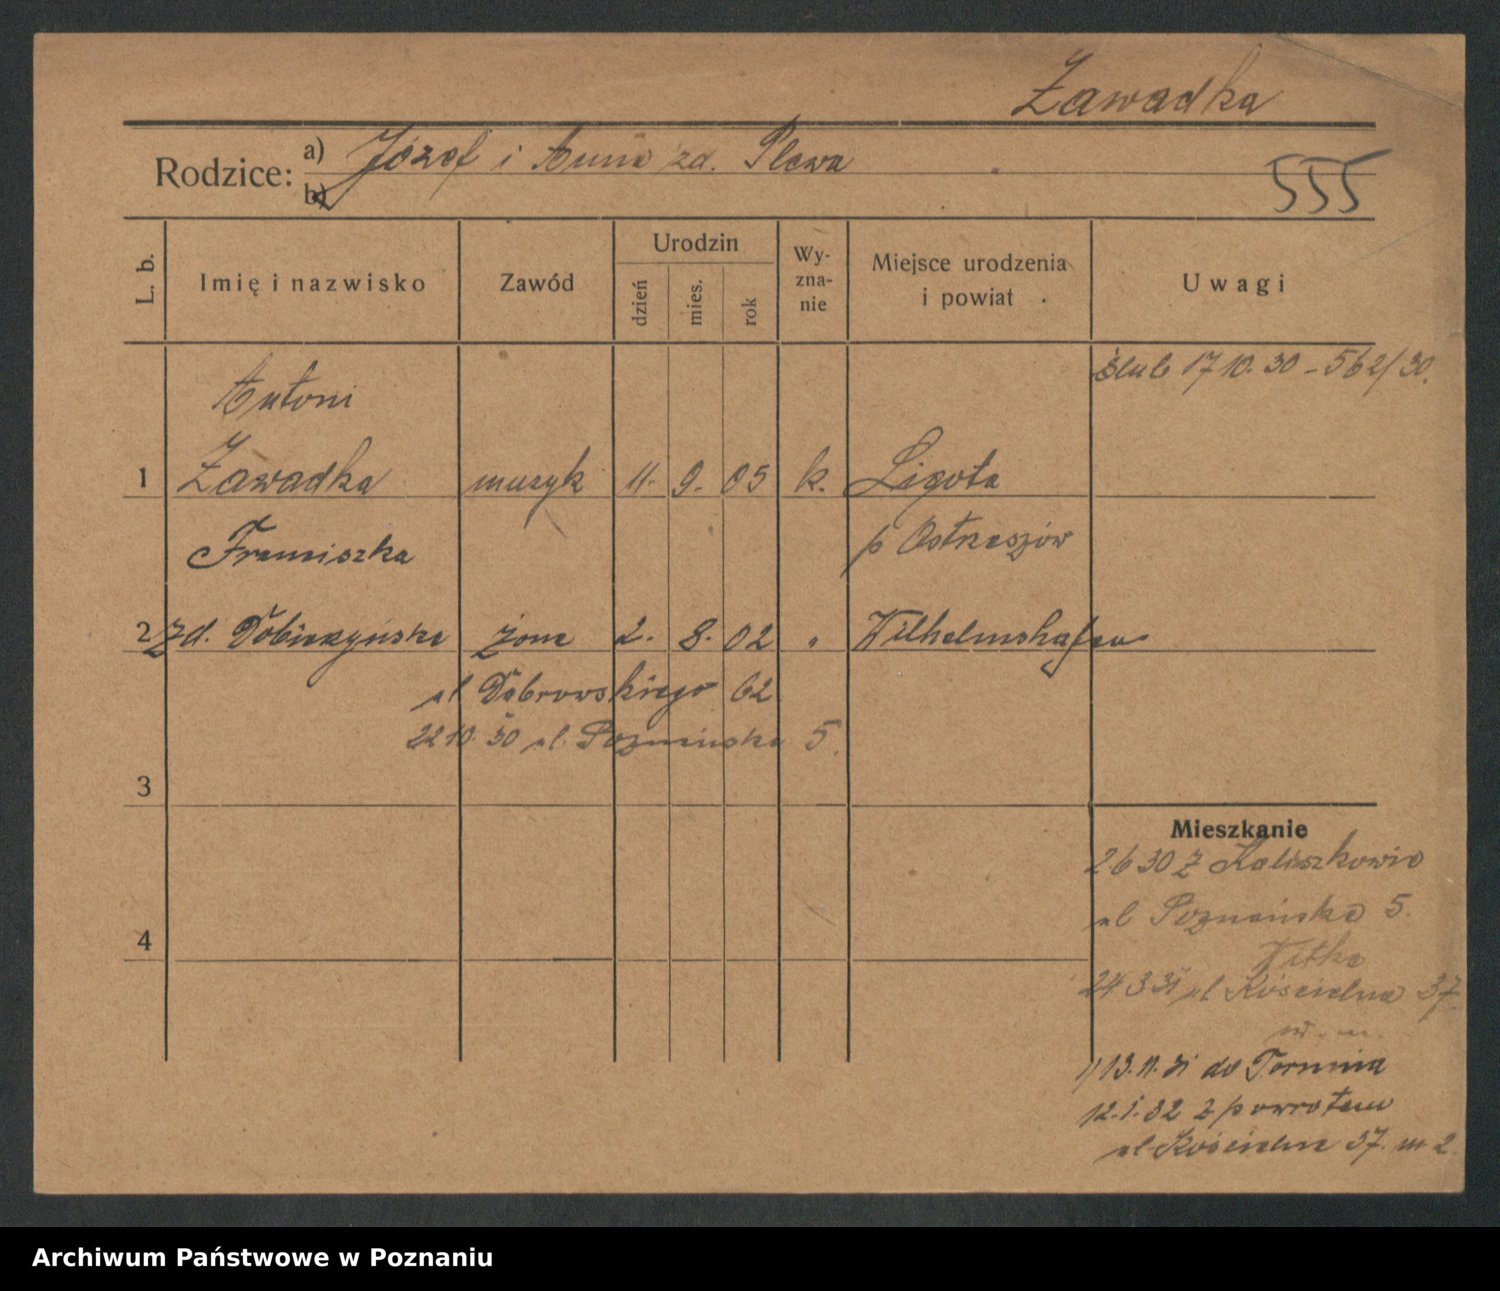 Zawadka
Rodzice:
a) Józef i Anna zd. Plewa
b)
555
L. b.
Imię i nazwisko
Zawód
Urodzin
dzień
mies.
rok
Wy-
zna-
nie
Miejsce urodzenia
i powiat
Uwagi
ślub 17 10. 30 - 562/30.
Antoni
1 Zawadka muzyk 11. 9. 05 k. Ligota
Franciszka p Ostrzeszów
2 zd. Dobierzyńska żona 2. 8. 02 " Wilhelmshafen
ul Dąbrowskiego 62
22 10 30 ul. Poznańska 5.
3
Mieszkanie
2 6 30 z Kaliszkowic
ul Poznańska 5.
4
Witka
24 3 31 ul Kościelna 37
13. 11. 31 do Torunia
12. 1. 32 z powrotem
ul. Kościelna 37. m 2.
Archiwum Państwowe w Poznaniu